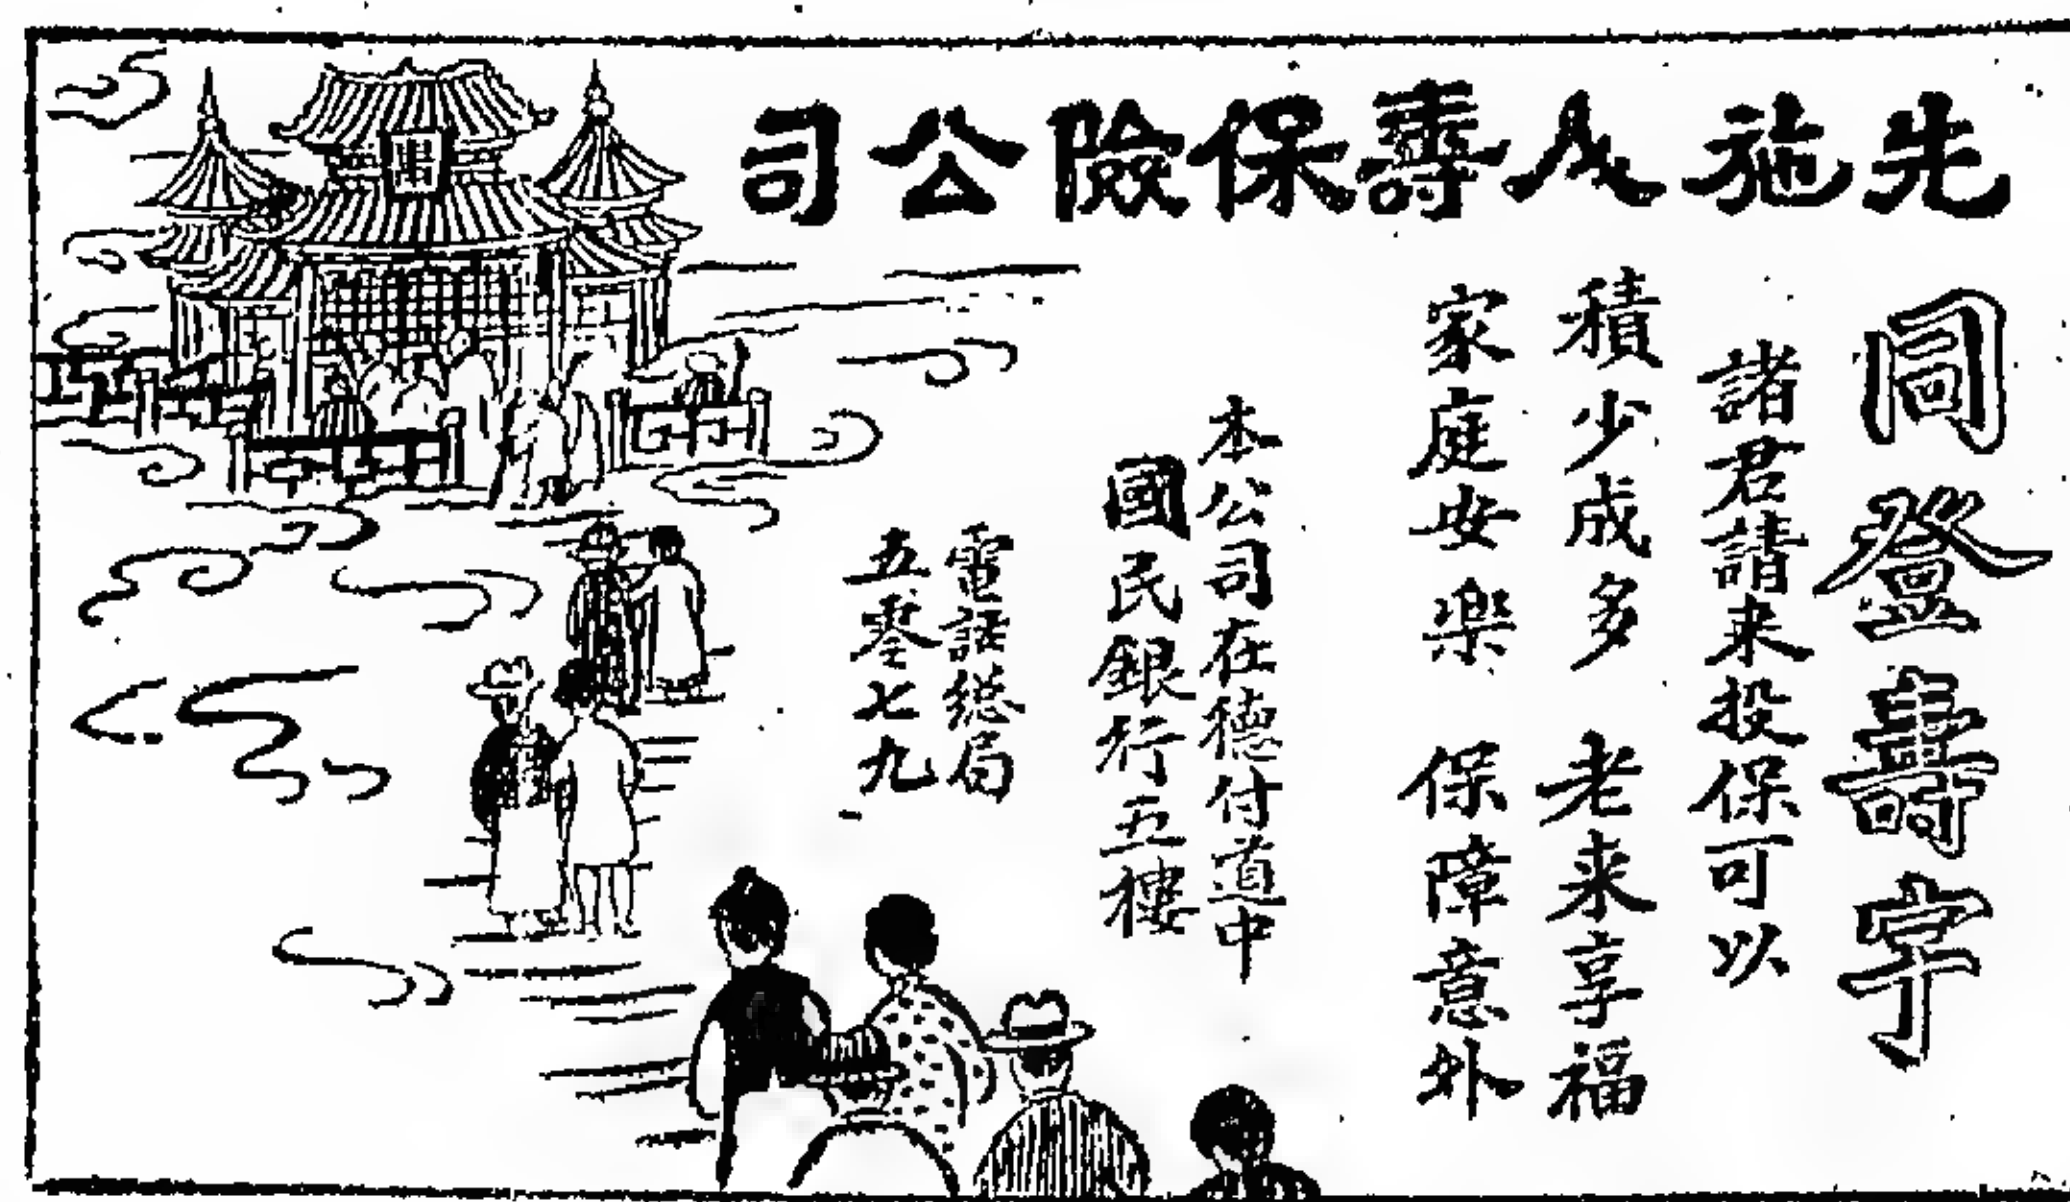 先施人壽保險公司
同登壽字
諸君請来投保可以
積少成多 老来享福
家庭安樂 保障意外
本公司在德付道中
國民銀行五樓
電話総局
五零七九
壽